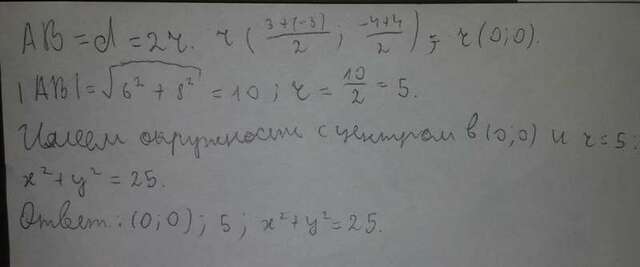 AB = d = 2r. r ( (3+(-3))/2 ; (-4+4)/2 ) ; r (0;0).
|AB| = √(6² + 8²) = 10 ; r = 10/2 = 5.
Имеем окружность с центром в (0;0) и r = 5:
x² + y² = 25.
Ответ: (0;0); 5; x² + y² = 25.